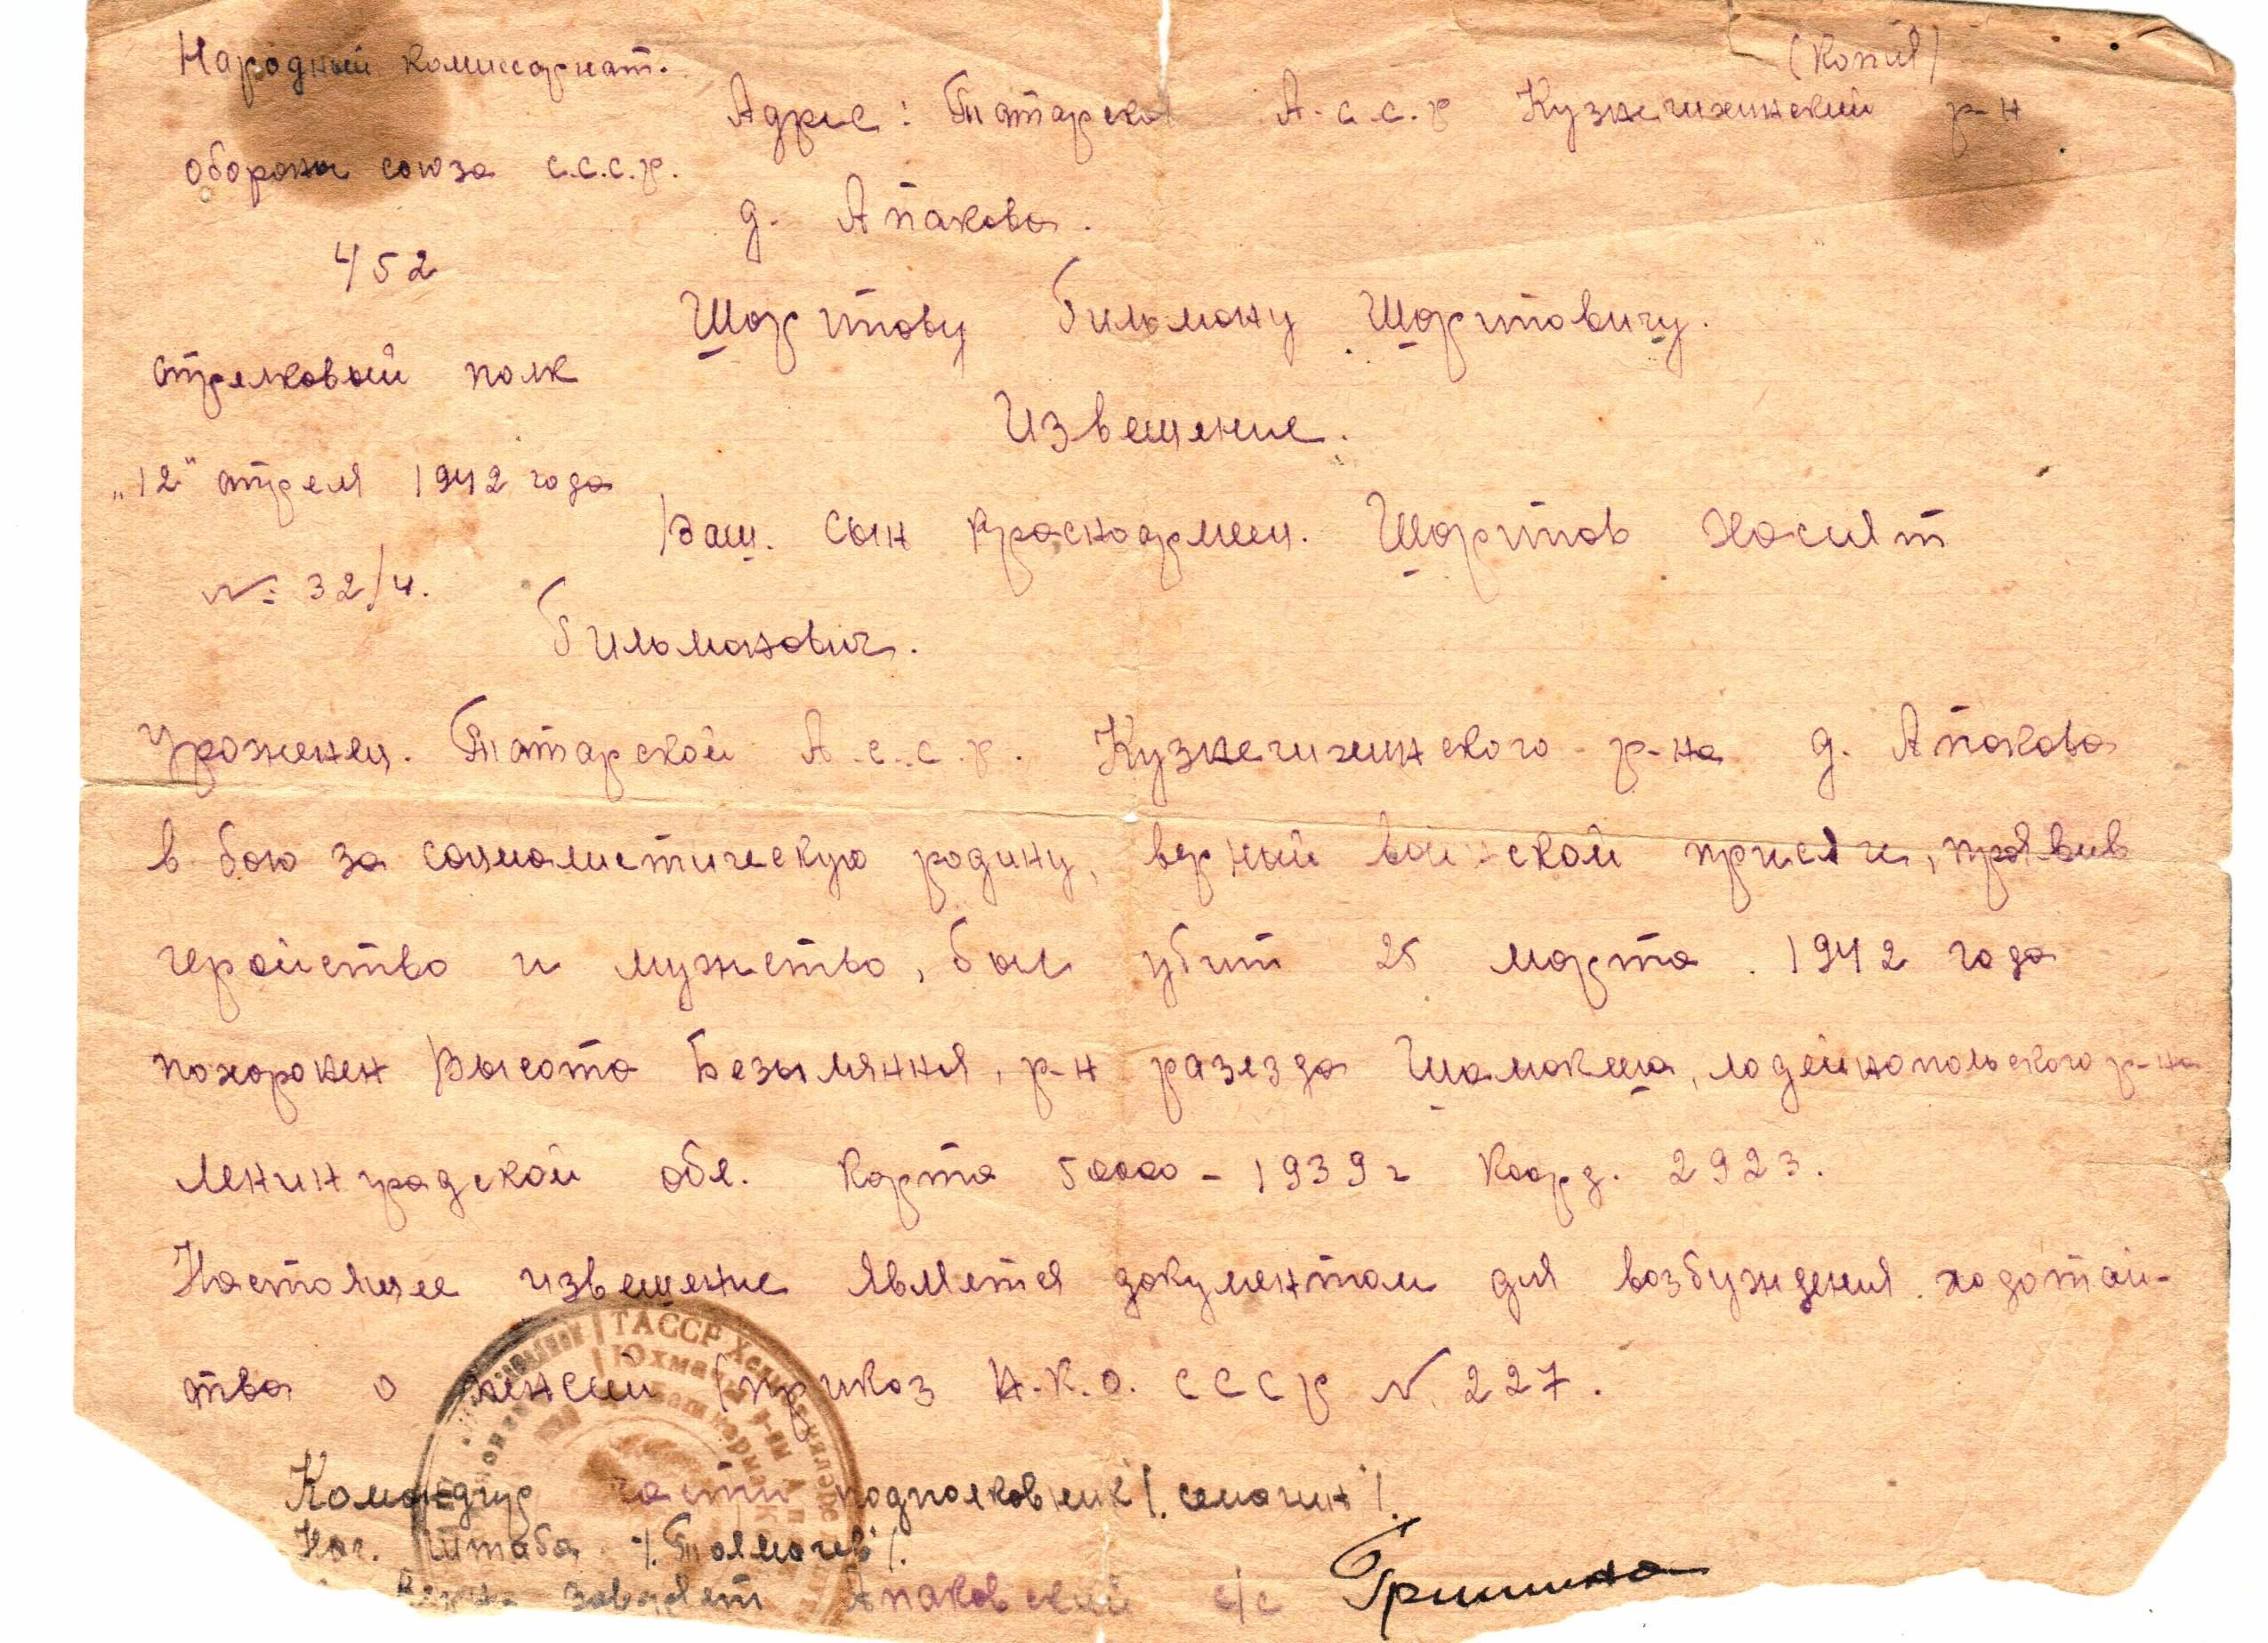 (Копия)
Народный комиссариат.
обороны союза с.с.с.р.
452
стрелковый полк
„12" апреля 1942 года
№ 32/4.
Адрес: Татарско А.с.с.р Кузнечихинский р-н
д. Апакова.
Шаритову Бильману Шаритовичу.
Извещение.
Ваш. сын красноармеец. Шаритов Хасият
Бильманович.
Уроженец. Татарской А.с.с.р. Кузнечихинского р-на д. Апакова
в бою за социалистическую родину, верный воинской присяги, проявив
геройство и мужество, был убит 25 марта. 1942 года
похоронен Высота Безымянния, р-н разезда Шамокша, лодейнопольского р-на
Ленинградской обл. Карта 50000 - 1939 г Коорд. 2923.
Настоящее извещение является документом для возбуждения ходотай-
тва о пенсии (приказ Н.К.О. СССР № 227.
Командир части подполковник /. семагин /.
Нач. Штаба /. Толмачев /.
заверяет Апаковский с/с Гришина
ТАССР